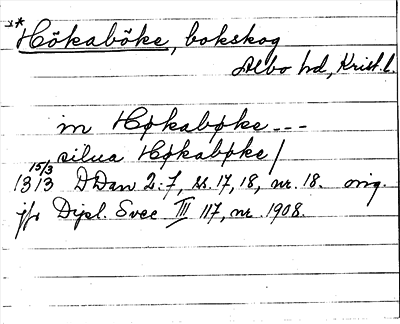 * Hökaböke, bokskog
Albo hd, Krist. l.
in Høkabøke ---
silua Høkabøke/
15/3
1313 DDan 2:7, ss. 17, 18, nr. 18. orig.
jfr Dipl. Svec III 117, nr. 1908.